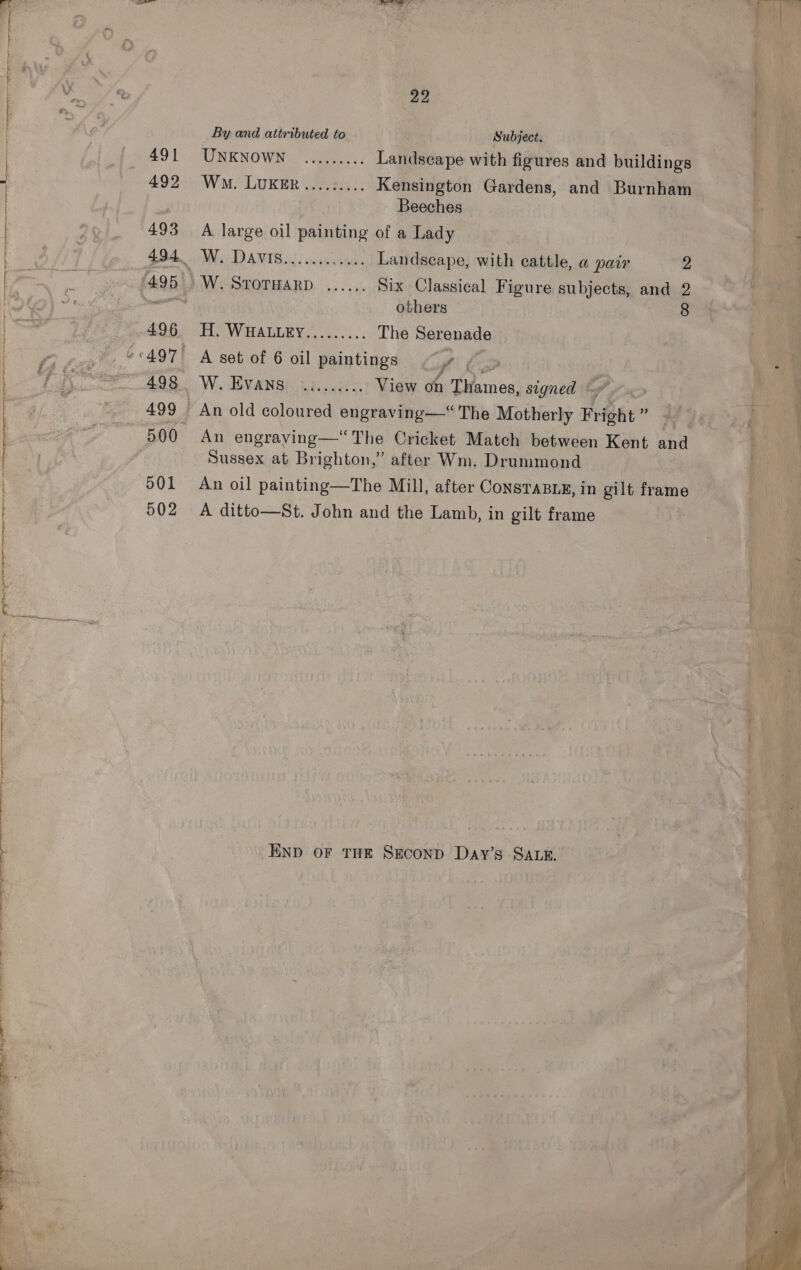 22
By and attributed to Subject.
491 UNKNOWN ......... Landscape with figures and buildings
492 WM. LUKER ......... Kensington Gardens, and Burnham
Beeches
493 A large oil painting of a Lady
494 W. DAVIS ............ Landscape, with cattle, a pair 2
495 W. STOTHARD ...... Six Classical Figure subjects, and 2
others 8
496 H. WHALLEY ......... The Serenade
497 A set of 6 oil paintings
498 W. EVANS ......... View on Thames, signed
499 An old coloured engraving—“The Motherly Fright”
500 An engraving—“The Cricket Match between Kent and
Sussex at Brighton,” after Wm. Drummond
501 An oil painting—The Mill, after CONSTABLE, in gilt frame
502 A ditto—St. John and the Lamb, in gilt frame
END OF THE SECOND DAY’S SALE.